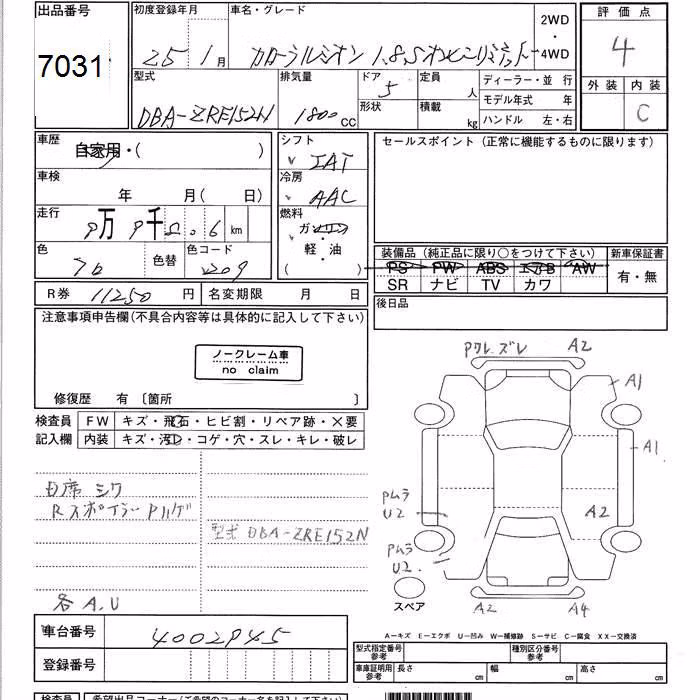 出品番号
7031
初度登録年月
25 1月
車名・グレード
カローラルミオン 1.8S
2WD
・
4WD
評価点
4
外装 内装
C
型式
DBA-ZRE152N
排気量
1800 CC
ドア
5
形状
定員
人
積載
kg
ディーラー・並 行
モデル年式 年
ハンドル 左・右
車歴
自家用・( )
車検
年 月( 日)
走行
9万 9千 .6 km
色
色替
色コード
209
シフト
IAT
冷房
AAC
燃料
ガソリン
・
軽・油
( )
セールスポイント(正常に機能するものに限ります)
装備品(純正品に限り○をつけて下さい)
PS PW ABS エアB AW
SR ナビ TV カワ
新車保証書
有・無
R券 11250 円
名変期限 月 日
後日品
注意事項申告欄(不具合内容等は具体的に記入して下さい)
ノークレーム車
no claim
修復歴 有 〔箇所 〕
検査員
記入欄
FW キズ・飛石・ヒビ割・リペア跡・×要
内装 キズ・汚レ・コゲ・穴・スレ・キレ・破レ
内席 シワ
Rスポイラー Pハゲ
型式 DBA-ZRE152N
各A,U
Pワレ.ズレ A2
A1
A1
Pムラ
U2
A2
Pムラ
U2
A2 A4
スペア
A－キズ E－エクボ U－凹み W－補修跡 S－サビ C－腐食 XX－交換済
車台番号 4002945
登録番号
型式指定番号
参考
種別区分番号
参考
車庫証明用
参考
長さ cm
幅 cm
高さ cm
検査員
希望出品コーナー(ご希望のコーナー名を記入して下さい)